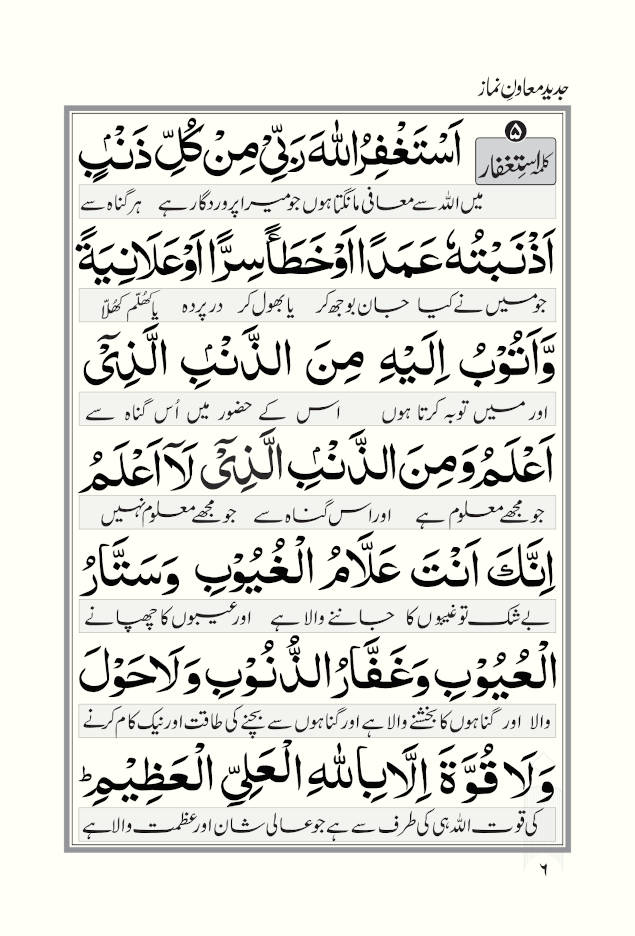 جدید معاونِ نماز
۵
کلمہ اِستِغفار
اَسْتَغْفِرُ اللهَ رَبِّيْ مِنْ كُلِّ ذَنْۢبٍ
میں اللہ سے معافی مانگتا ہوں جو میرا پروردگار ہے ہر گناہ سے
اَذْنَبْتُهٗ عَمَدًا اَوْ خَطَأً سِرًّا اَوْ عَلَانِيَةً
جو میں نے کیا جان بوجھ کر یا بھول کر در پردہ یا کھُلّم کھُلّا
وَّاَتُوْبُ اِلَيْهِ مِنَ الذَّنْۢبِ الَّذِيْٓ
اور میں توبہ کرتا ہوں اس کے حضور میں اُس گناہ سے
اَعْلَمُ وَمِنَ الذَّنْۢبِ الَّذِيْٓ لَآ اَعْلَمُ
جو مجھے معلوم ہے اور اس گناہ سے جو مجھے معلوم نہیں
اِنَّكَ اَنْتَ عَلَّامُ الْغُيُوْبِ وَسَتَّارُ
بے شک تو غیبوں کا جاننے والا ہے اور عیبوں کا چھپانے
الْعُيُوْبِ وَغَفَّارُ الذُّنُوْبِ وَلَا حَوْلَ
والا اور گناہوں کا بخشنے والا ہے اور گناہوں سے بچنے کی طاقت اور نیک کام کرنے
وَلَا قُوَّةَ اِلَّا بِاللهِ الْعَلِيِّ الْعَظِيْمِ ؕ
کی قوت اللہ ہی کی طرف سے ہے جو عالی شان اور عظمت والا ہے
۶